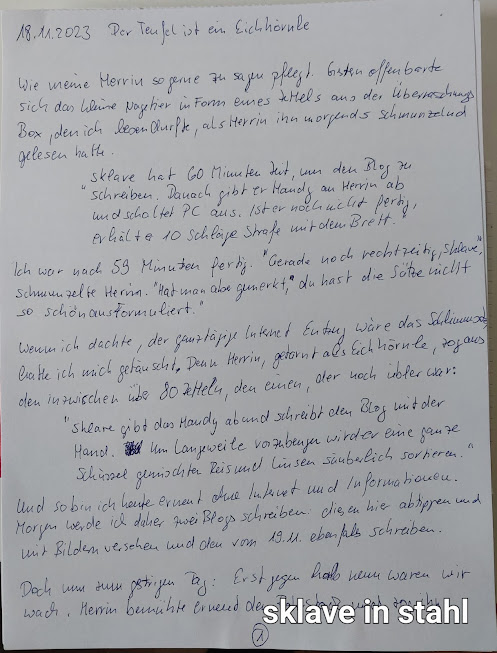 18.11.2023 Der Teufel ist ein Eichhörnle
Wie meine Herrin so gerne zu sagen pflegt. Gestern offenbarte
sich das kleine Nagetier in Form eines Zettels aus der Überraschungs
Box, den ich lesen durfte, als Herrin ihn morgends schmunzelnd
gelesen hatte.
"Sklave hat 60 Minuten Zeit, um den Blog zu
schreiben. Danach gibt er Handy an Herrin ab
und schaltet PC aus. Ist er noch nicht fertig,
erhält er 10 Schläge Strafe mit dem Brett."
Ich war nach 59 Minuten fertig. "Gerade noch rechtzeitig, Sklave",
schmunzelte Herrin. "Hat man aber gemerkt, du hast die Sätze nicht
so schön ausformuliert."
Wenn ich dachte, der ganztägige Internet Entzug wäre das Schlimmste,
hatte ich mich getäuscht. Denn Herrin, getarnt als Eichhörnle, zog aus
den inzwischen über 80 Zetteln, den einen, der noch übler war:
"Sklave gibt das Handy ab und schreibt den Blog mit der
Hand. Um Langeweile vorzubeugen wird er eine ganze
Schüssel gemischten Reis und Linsen säuberlich sortieren."
Und so bin ich heute erneut ohne Internet und Informationen.
Morgen werde ich daher zwei Blogs schreiben: diesen hier abtippen und
mit Bildern versehen und den vom 19.11. ebenfalls schreiben.
Doch nun zum gestrigen Tag: Erst gegen halb neun waren wir
wach. Herrin bemühte erneut den
sklave in stahl
1